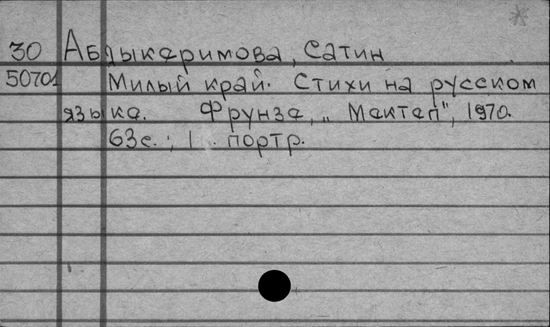 30 Абдыкаримова, Сатин
50701 Милый край. Стихи на русском
языка. Фрунзе, "Мектеп", 1970.
63с.; 1 . портр.